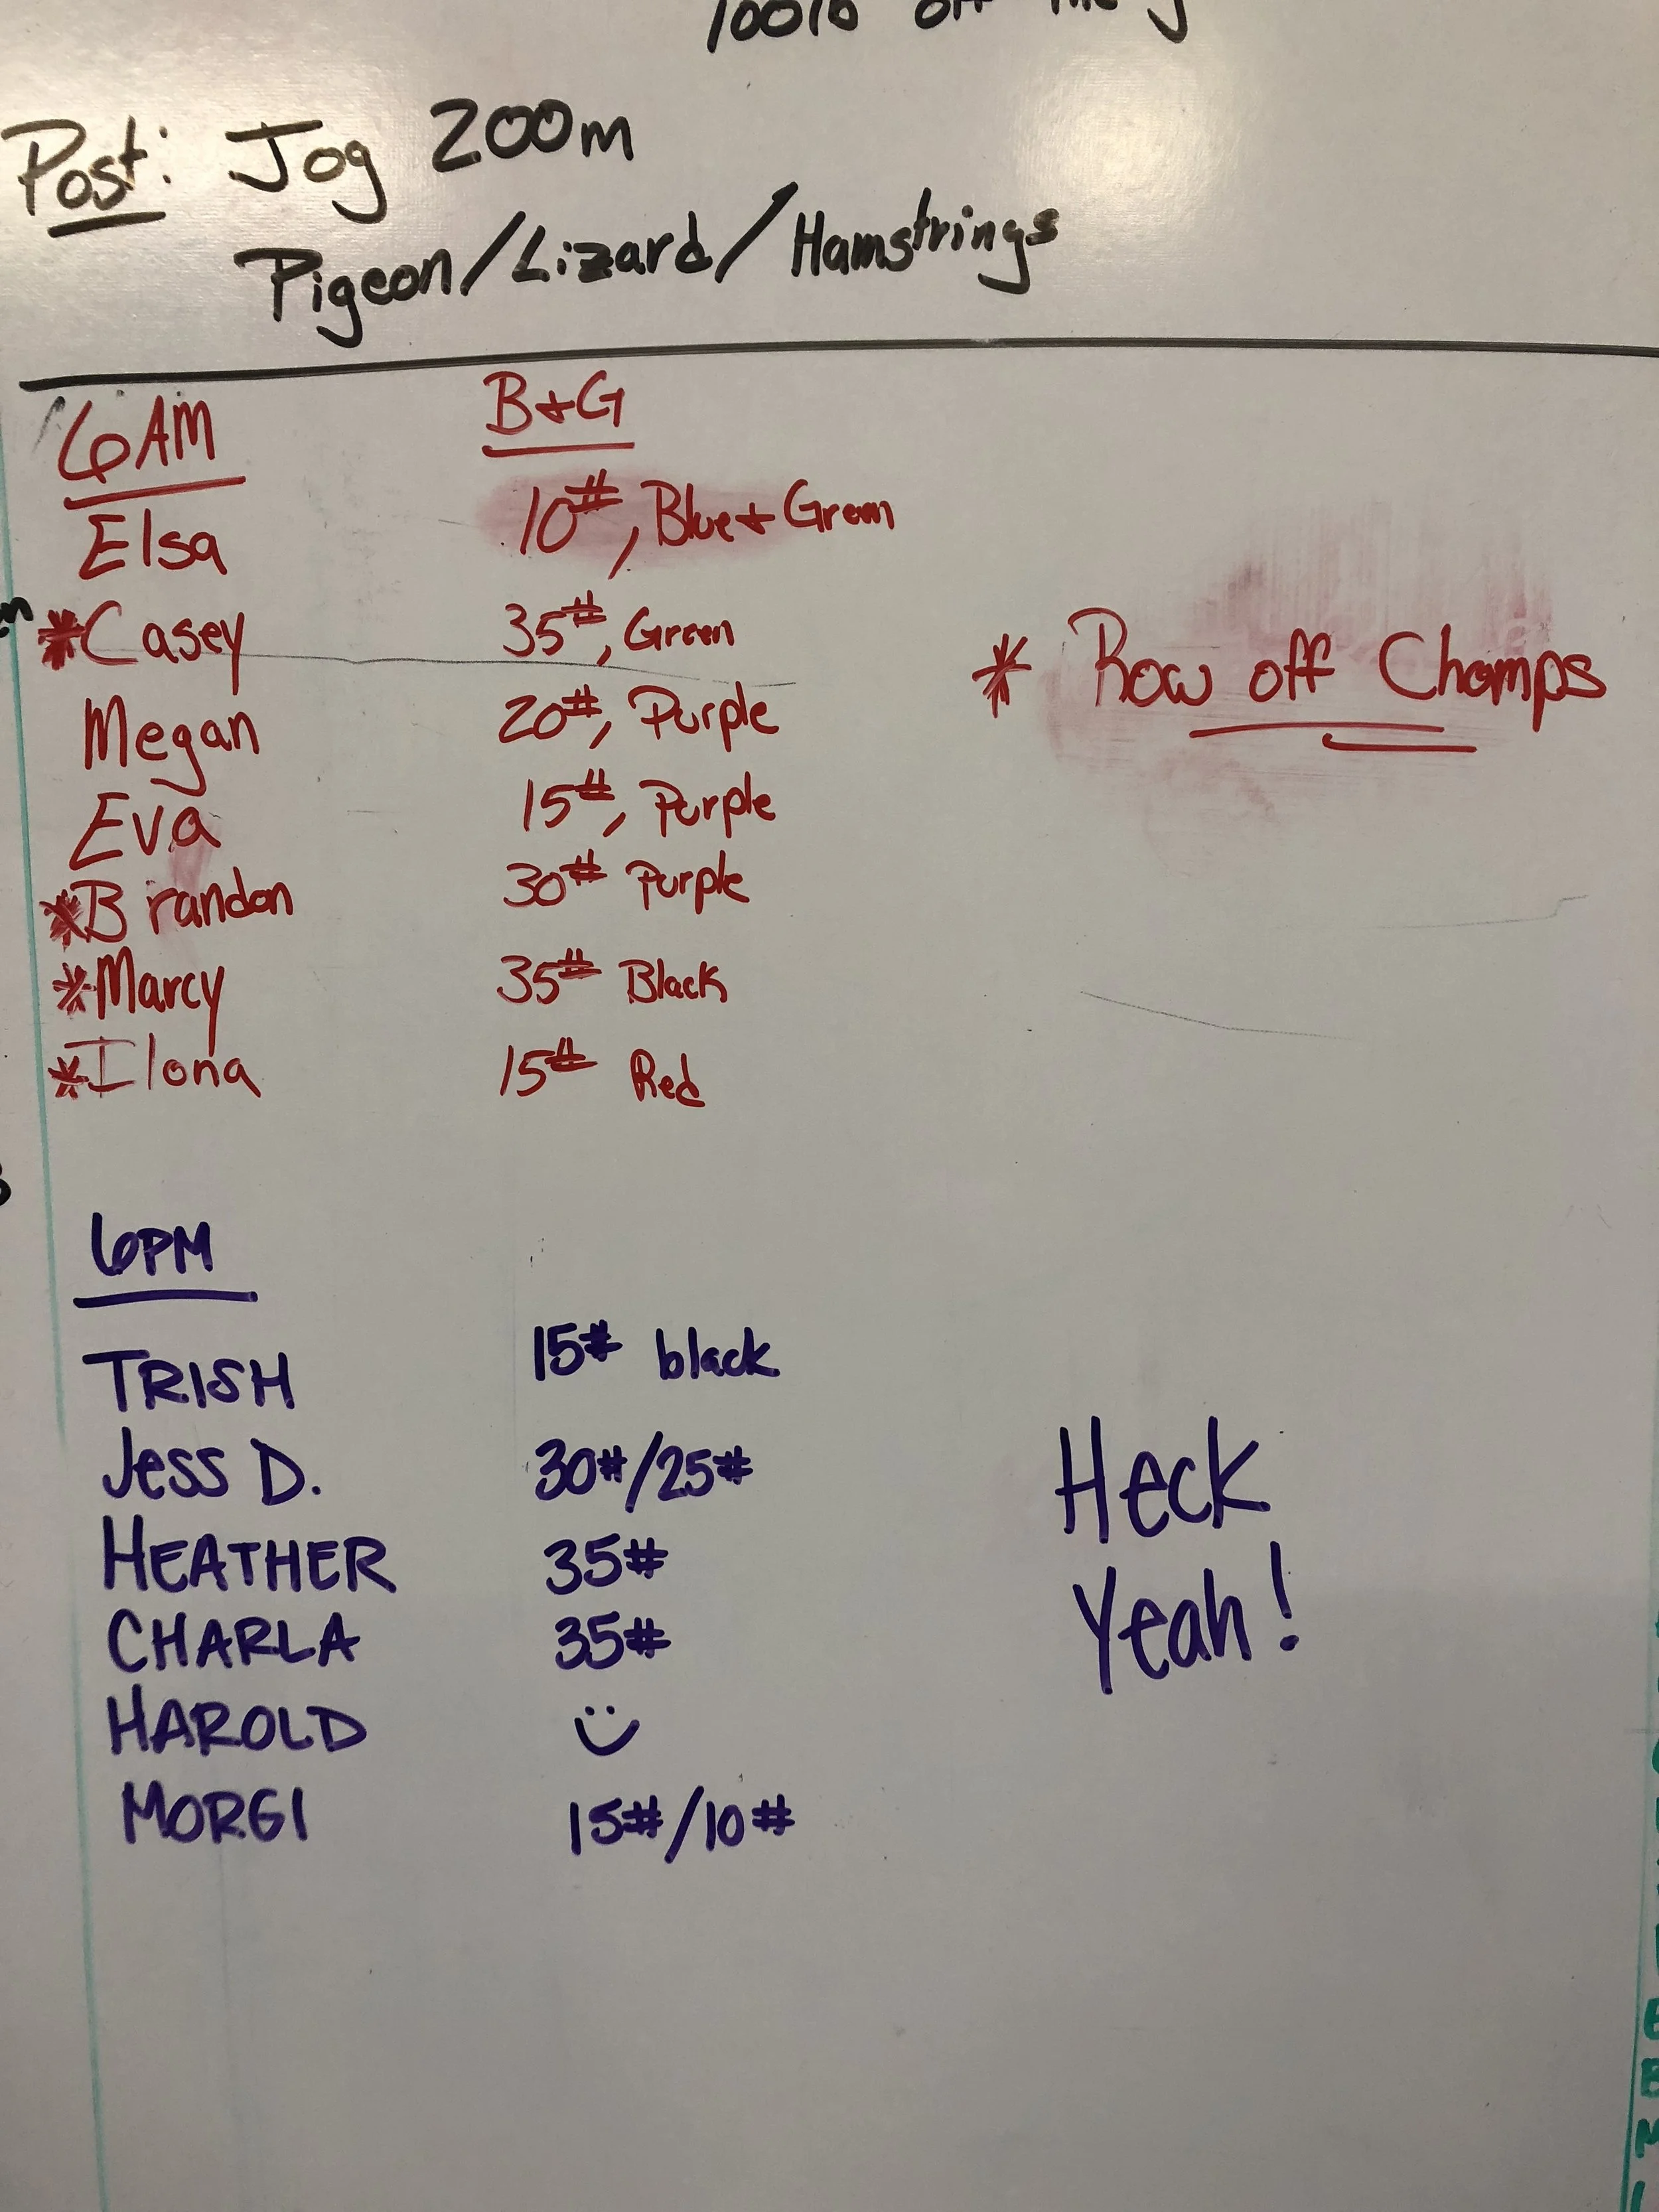 Post: Jog 200m
Pigeon/Lizard/Hamstrings
6AM B+G
Elsa 10#, Blue + Green
*Casey 35#, Green
* Row off Champs
Megan 20#, Purple
Eva 15#, Purple
*Brandon 30# Purple
*Marcy 35# Black
*Ilona 15# Red
6PM
TRISH 15# black
Jess D. 30#/25#
HEATHER 35#
CHARLA 35#
HAROLD
MORGI 15#/10#
Heck
Yeah!